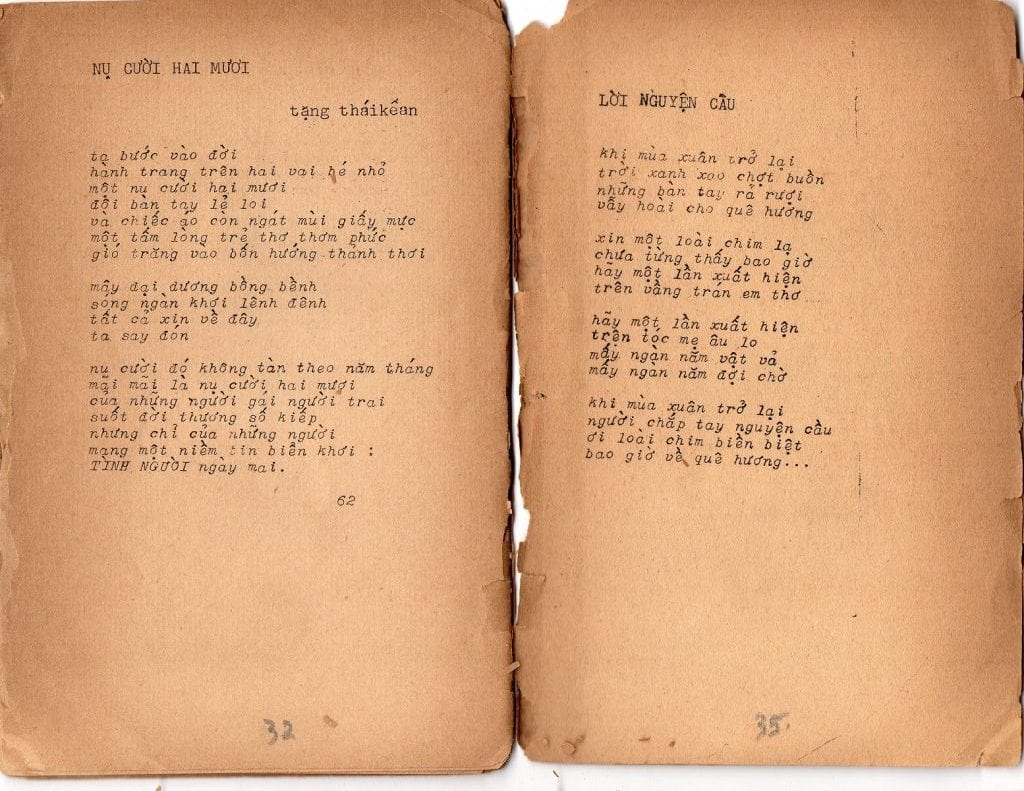 NỤ CƯỜI HAI MƯƠI
tặng tháikễan
ta bước vào đời
hành trang trên hai vai bé nhỏ
một nụ cười hai mươi
đôi bàn tay lẻ loi
và chiếc áo còn ngát mùi giấy mực
một tấm lòng trẻ thơ thơm phức
gió trăng vào bốn hướng thảnh thơi
mây đại dương bồng bềnh
sóng ngàn khơi lênh đênh
tất cả xin về đây
ta say đón
nụ cười đó không tàn theo năm tháng
mãi mãi là nụ cười hai mươi
của những người gái người trai
suốt đời thương số kiếp
nhưng chỉ của những người
mang một niềm tin biển khơi :
TÌNH NGƯỜI ngày mai.
62
32
LỜI NGUYỆN CẦU
khi mùa xuân trở lại
trời xanh xao chợt buồn
những bàn tay rã rượi
vẫy hoài cho quê hương
xin một loài chim lạ
chưa từng thấy bao giờ
hãy một lần xuất hiện
trên vầng trán em thơ
hãy một lần xuất hiện
trên tóc mẹ âu lo
mấy ngàn năm vật vả
mấy ngàn năm đợi chờ
khi mùa xuân trở lại
người chắp tay nguyện cầu
ơi loài chim biền biệt
bao giờ về quê hương...
35